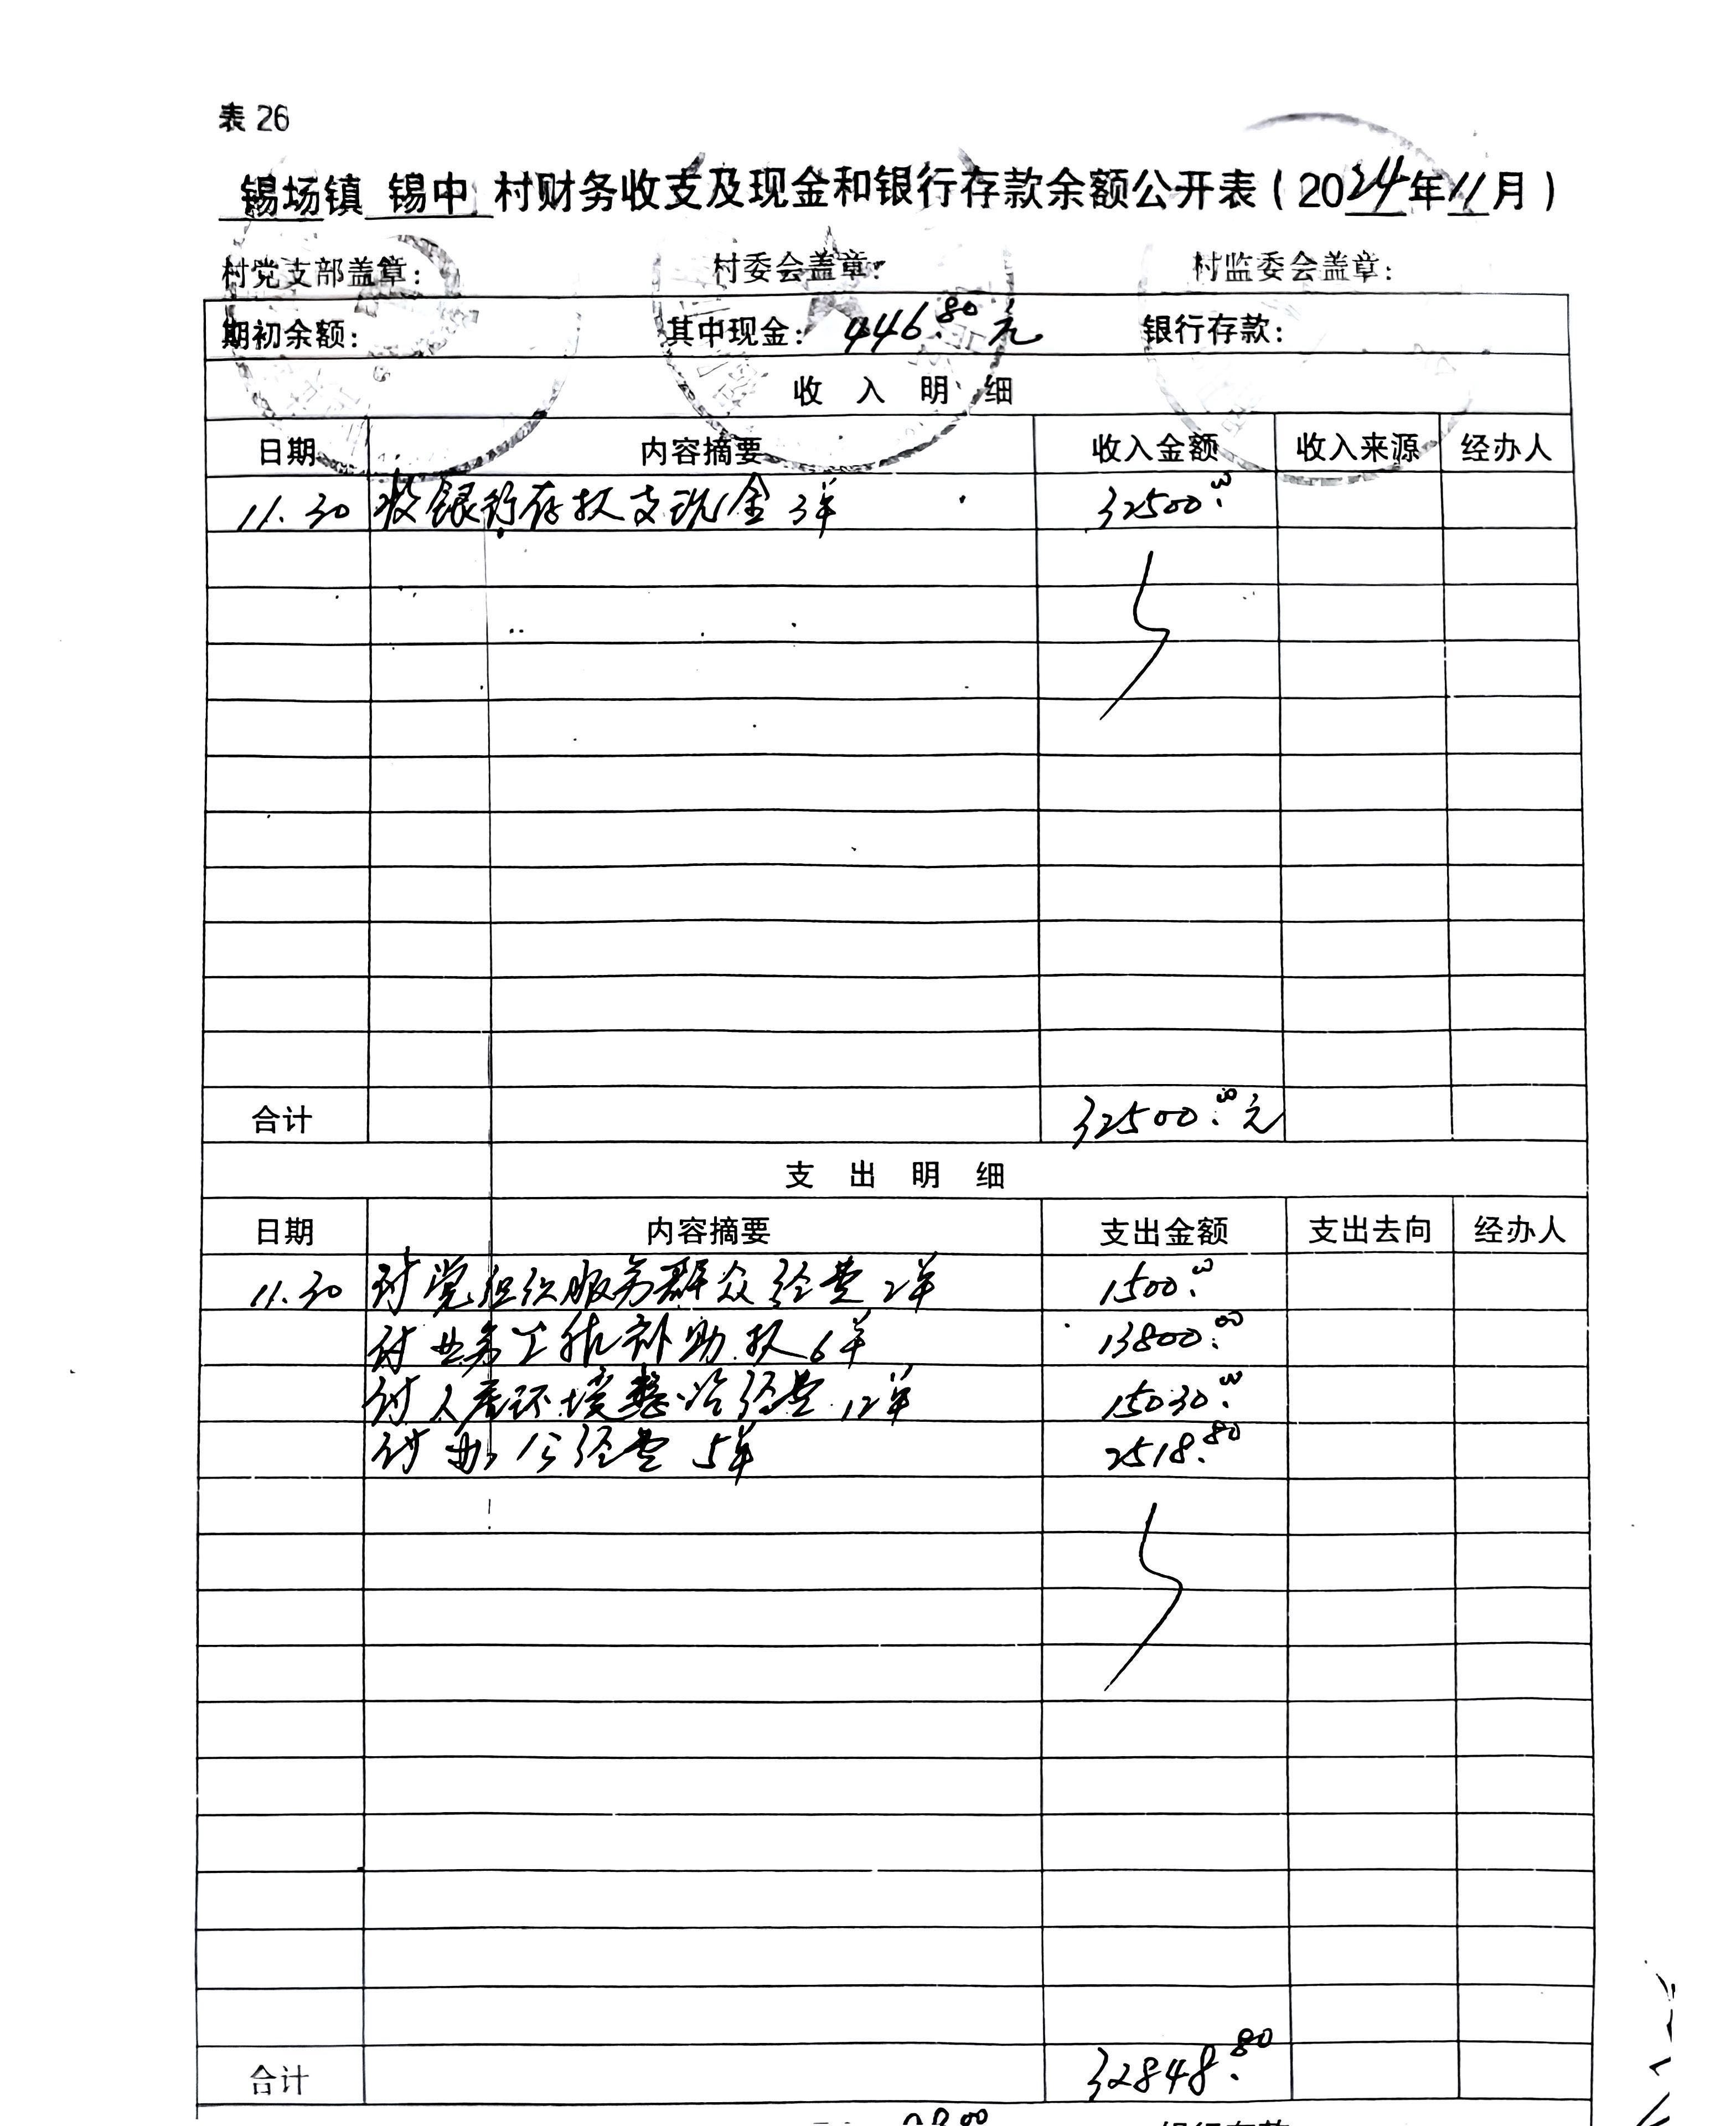 表 26
锡场镇 锡中 村财务收支及现金和银行存款余额公开表(2024年11月)
村党支部盖章: 村委会盖章: 村监委会盖章:
期初余额: 其中现金: 446.80元 银行存款:
收 入 明 细
日期 内容摘要 收入金额 收入来源 经办人
11.30 收银行存款支现金3单 32500.00
合计 32500.00元
支 出 明 细
日期 内容摘要 支出金额 支出去向 经办人
11.30 付党组织服务群众经费2单 1500.00
付业务工作补助款6单 13800.00
付人居环境整治经费12单 15030.00
付办公经费5单 2518.80
合计 32848.80
98.00